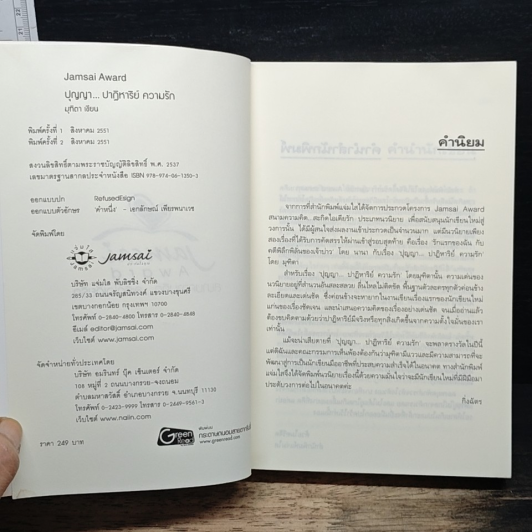 Jamsai Award
ปุญญา... ปาฏิหาริย์ ความรัก
มุทิตา เขียน
พิมพ์ครั้งที่ 1 สิงหาคม 2551
พิมพ์ครั้งที่ 2 สิงหาคม 2551
สงวนลิขสิทธิ์ตามพระราชบัญญัติลิขสิทธิ์ พ.ศ. 2537
เลขมาตรฐานสากลประจำหนังสือ ISBN 978-974-06-1350-3
ออกแบบปก
ออกแบบตัวอักษร
จัดพิมพ์โดย
jamsai
บริษัท แจ่มใส พับลิชชิ่ง จำกัด
285/33 ถนนจรัญสนิทวงศ์ แขวงบางขุนศรี
เขตบางกอกน้อย กรุงเทพฯ 10700
โทรศัพท์ 0-2840-4800 โทรสาร 0-2840-4848
อีเมล editor@jamsai.com
เว็บไซต์ www.jamsai.com
จัดจำหน่ายทั่วประเทศโดย
บริษัท อมรินทร์ บุ๊ค เซ็นเตอร์ จำกัด
108 หมู่ที่ 2 ถนนบางกรวย-จงถนอม
ตำบลมหาสวัสดิ์ อำเภอบางกรวย จ.นนทบุรี 11130
โทรศัพท์ 0-2423-9999 โทรสาร 0-2449-9561-3
เว็บไซต์ www.naiin.com
ราคา 249 บาท
Green Read
พิมพ์บน
กระดาษถนอมสายตา
www.greenread.com
คำนิยม
จากการที่สำนักพิมพ์แจ่มใสได้จัดการประกวดโครงการ Jamsai Award
สนามความคิด, สะกิดไอเดียรัก ประเภทนวนิยาย เพื่อสนับสนุนนักเขียนใหม่สู่
วงการนั้น ได้มีผู้สนใจส่งผลงานเข้าประกวดเป็นจำนวนมาก แต่มีนวนิยายเพียง
สองเรื่องที่ได้รับการคัดสรรให้ผ่านเข้าสู่รอบสุดท้าย คือเรื่อง
โดย นานา กับเรื่อง ปุญญา... ปาฏิหาริย์ ความรัก
โดย มุทิตา
สำหรับเรื่อง ปุญญา... ปาฏิหาริย์ ความรัก โดยมุทิตานั้น ความเด่นของ
นวนิยายอยู่ที่สำนวนอันสละสลวย ลื่นไหลไม่ติดขัด พื้นฐานตัวละครทุกตัวค่อนข้าง
ละเอียดและเด่นชัด
แก่นของเรื่องชัดเจน และนำเสนอความคิดของเรื่องอย่างเด่นชัด จนเมื่ออ่านแล้ว
ต้องขบคิดตามด้วยว่าปาฏิหาริย์มีจริงหรือทุกสิ่งเกิดขึ้นจากความตั้งใจมั่นของเรา
เท่านั้น
แม้จะน่าเสียดายที่ ปุญญา... ปาฏิหาริย์ ความรัก จะพลาดรางวัลในปีนี้
แต่ดิฉันและคณะกรรมการเห็นพ้องต้องกันว่ามุทิตามีแววและมีความสามารถที่จะ
พัฒนาสู่การเป็นนักเขียนมืออาชีพที่ประสบความสำเร็จได้ในอนาคต ทางสำนักพิมพ์
แจ่มใสจึงได้จัดพิมพ์นวนิยายเรื่องนี้ด้วยความมั่นใจว่าจะมีนักเขียนใหม่ที่มีฝีมือมา
ประดับวงการต่อไปในอนาคตค่ะ
กิ่งฉัตร